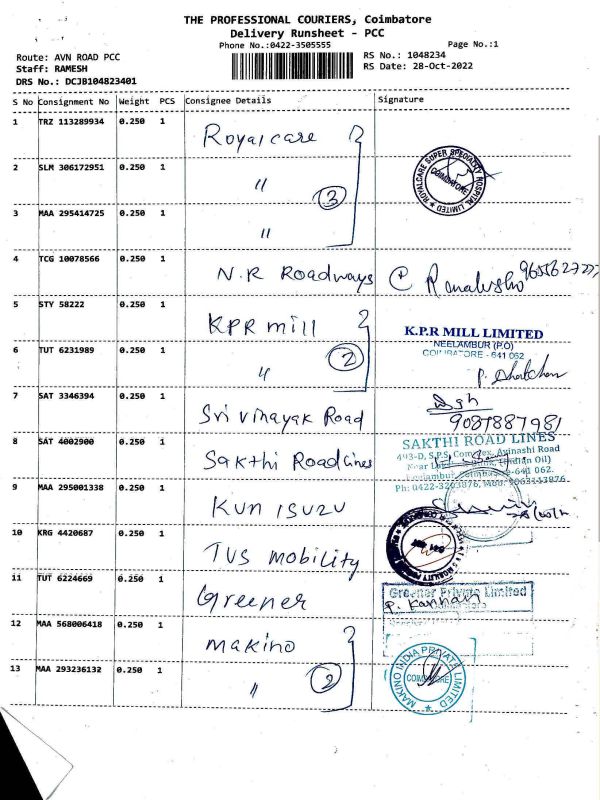 THE PROFESSIONAL COURIERS, Coimbatore
Delivery Runsheet - PCC
Phone No.:0422-3505555
Page No.:1
Route: AVN ROAD PCC
RS No.: 1048234
Staff: RAMESH
RS Date: 28-Oct-2022
DRS No.: DCJB104823401
S No Consignment No Weight PCS Consignee Details Signature
1 TRZ 113289934 0.250 1 Royalcare
2 SLM 306172951 0.250 1 〃 3
ROYALCARE SUPER SPECIALITY HOSPITAL LIMITED
COIMBATORE
3 MAA 295414725 0.250 1 〃
4 TCG 10078566 0.250 1 N.R Roadways
5 STY 58222 0.250 1 KPR mill
K.P.R MILL LIMITED
NEELAMBUR (P.O)
COIMBATORE - 641 062
6 TUT 6231989 0.250 1 〃 2
7 SAT 3346394 0.250 1 Sri Vinayak Road
9087887981
8 SAT 4002900 0.250 1 Sakthi RoadLines
SAKTHI ROAD LINES
493-D, S.P.S. Complex, Avinashi Road
(Indian Oil)
9 MAA 295001338 0.250 1 Kun isuzu
10 KRG 4420687 0.250 1 TVS mobility
11 TUT 6224669 0.250 1 Greener
Greener Private Limited
P. Kannan
12 MAA 568006418 0.250 1 makino
13 MAA 293236132 0.250 1 〃 2
MAKINO INDIA PRIVATE LIMITED
COIMBATORE